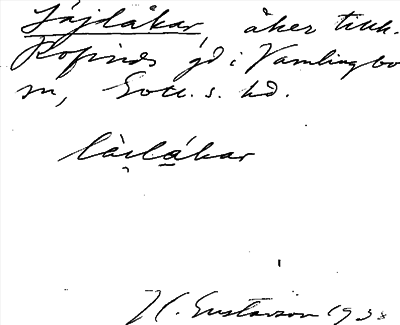 Lájdåkar, åker till.
Kofinds gd i Vamlingbo
sn, Gotl. s. hd.
làılákar
H. Gustavson 1938